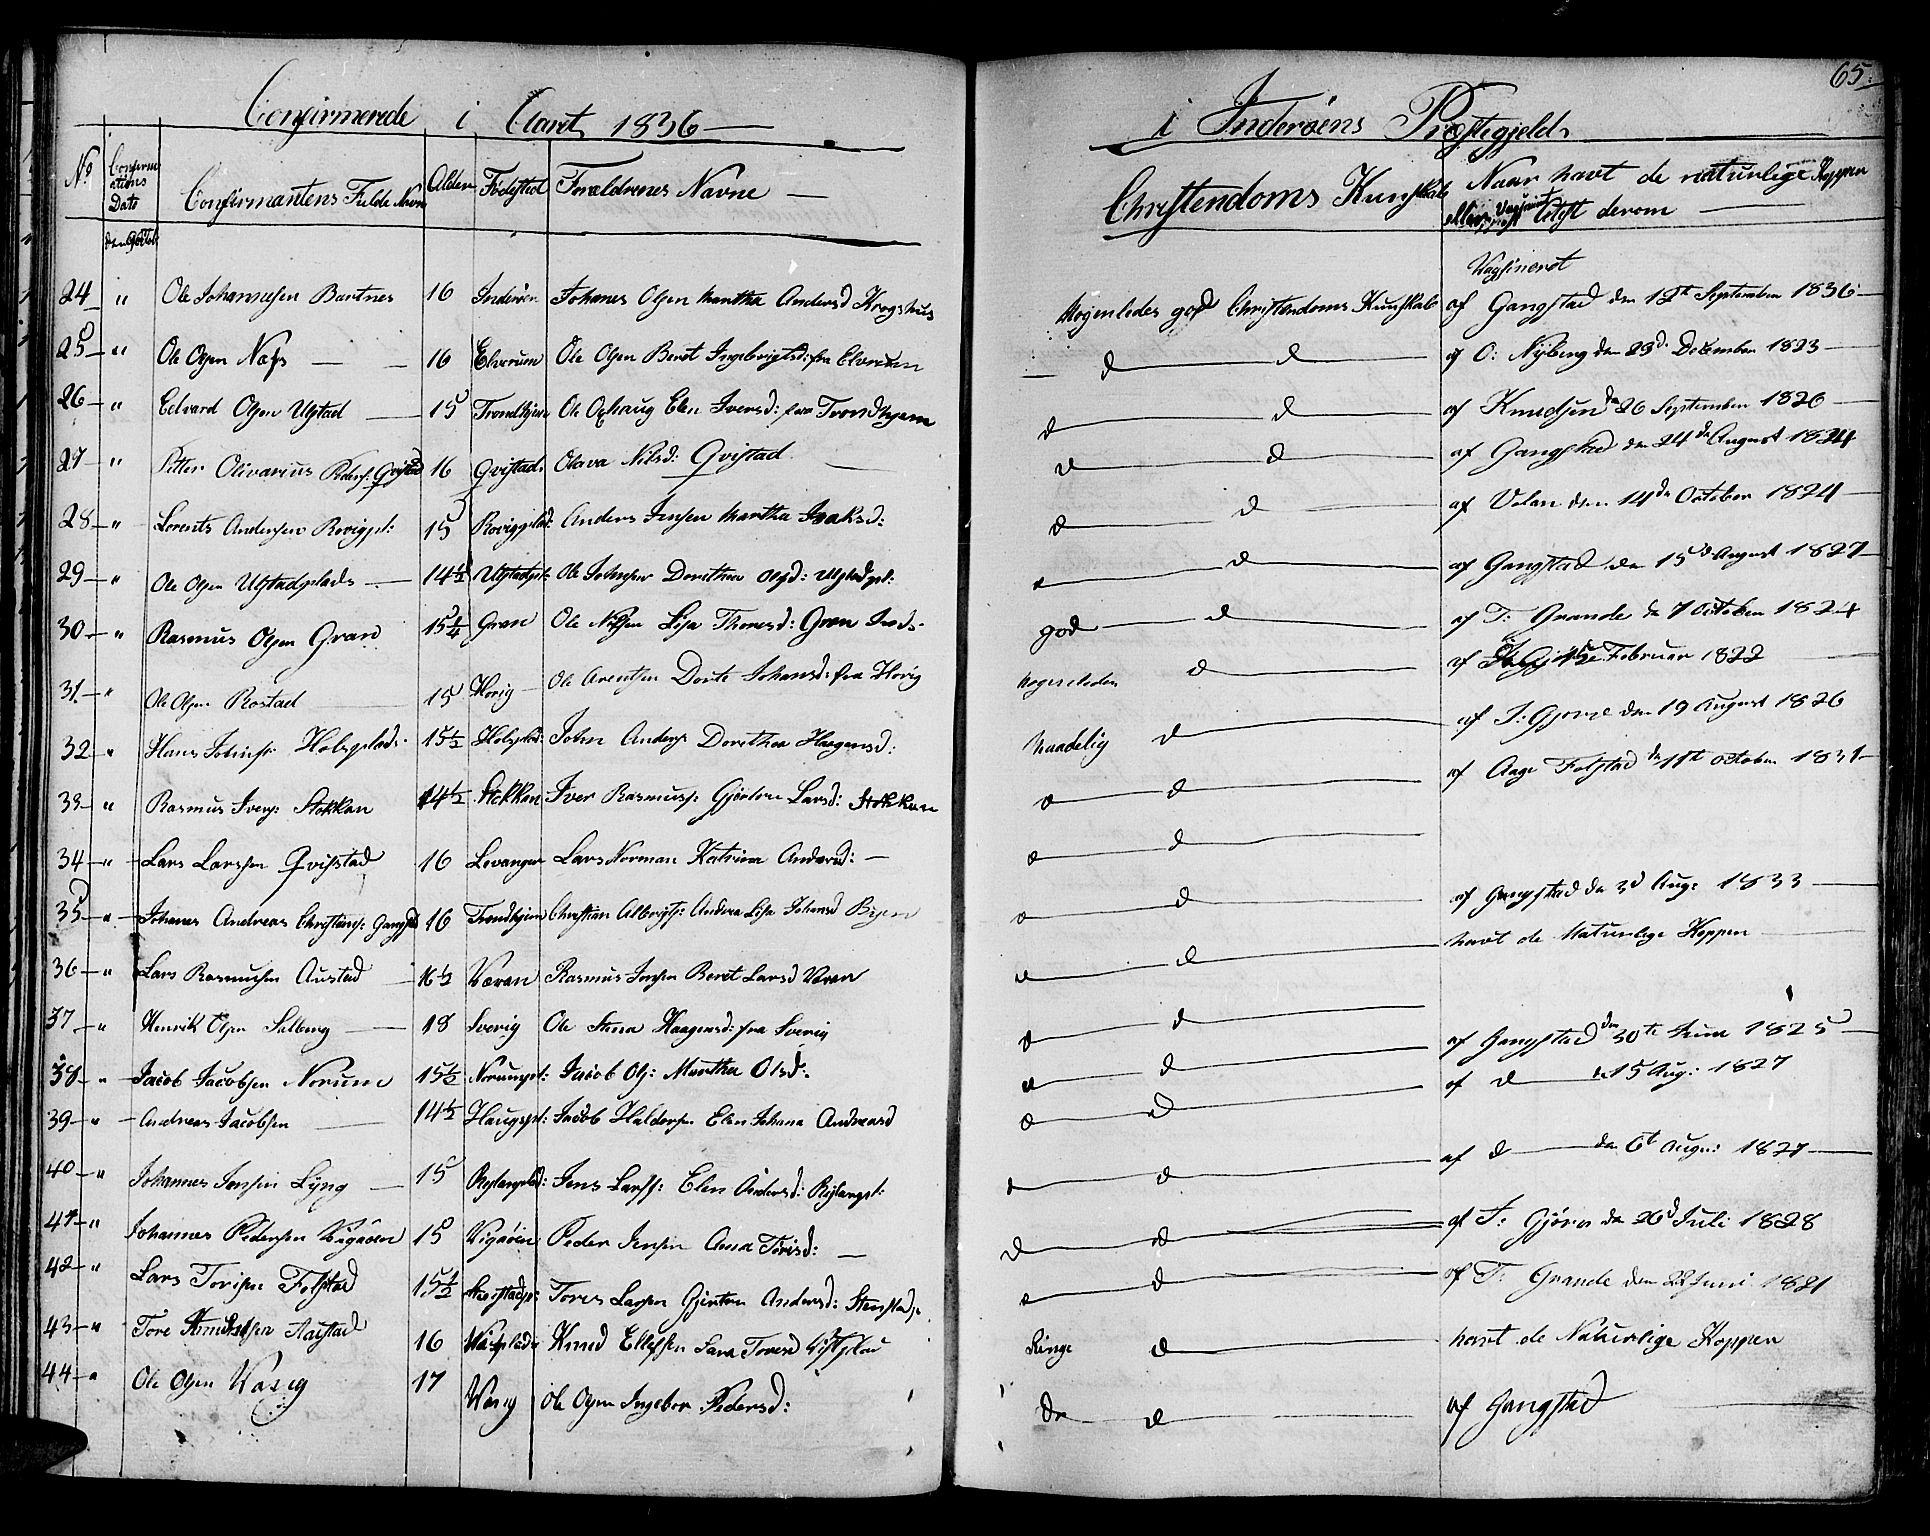 65.
Confirmerede i Aaret 1836
i Inderøens Præstegjeld
No Confirmations Date Confirmantens Fulde Navn Alder Fødested Forældrenes Navne Christendoms Kunskab Naar havt de naturlige Kopper eller Vagsineret Attest derom
Vagsineret
24 " Ole Johannesen Bartnes 16 Inderøen Johanes Olsen Martha Andersd Krogshus Nogenledes god Christendoms Kunskab af Gangstad den September 1836
25 " Ole Olsen Næss 16 Elverum Ole Olsen Beret Ingebrigtsd: fra Elverum d d af O: Nyberg den 23d December 1823
26 " Edvard Olsen Ulstad 15 Trondhjem Ole Elen Iversd: fra Trondhjem d d af Knudsen d 26 September 1826
27 " Petter Olivarius Peders: Qvistad 16 Qvistad Olava Nilsd: Qvistad d d af Gangstad den 24de August 1824
28 " Lorents Andersen 15 Anders Jensen Martha Isaksd: d d af Velan den 14de October 1824
29 " Ole Olsen Ulstadplads 14½ Ulstadpl: Ole Johnsen Dorethea Olsd: Ulstadpl: d d af Gangstad den 15de August 1827
30 " Rasmus Olsen Gran 15¼ Gran Ole Nilsen Lisa Thoresd: Gran god d af T: Grande d 7 October 1824
31 " Ole Olsen Rostad 15 Horig Ole Arentsen Dorte Johansd: fra Horig nogenledes d af Februar 1822
32 " Hans Johnsen Holsplads: 15½ Holsplad: John Anders Dorethea Haagensd: Maadelig d af T: Gjørre den 19 August 1826
33 " Rasmus Ivers: Stokkan 14½ Stokkan Iver Rasmuss: Gjertru Larsd: Stokkan d d af Aage Folstad d 11te october 1831
34 " Lars Larssen Qvistad 16 Levanger Lars Norman Katrina Andersd: d d
35 " Johanes Andreas Christians: Gangstad 16 Trondhjem Christian Albrigts: Andrea Lisa Johansd d d af Gangstad d 3d Aug: 1833
36 " Lars Rasmussen Austad 16½ Væran Rasmus Jensen Beret Larsd Væran d d havt de Naturlige Kopper
37 " Henrik Olsen Salberg 18 Sverig Ole Stena Haagensd: fra Sverig d d
38 " Jacob Jacobsen Norum 15½ Norumpl: Jacob Ols: Martha Olsd. d d af Gangstad den 30te Juni 1825
39 " Andreas Jacobsen 14½ Haugspl: Jacob Haldorsen Elen Johana Andreasd d d af d d 15 Aug: 1827
40 " Johannes Jensen Lyng 15 Jens Larss: Elen Andersd: d d af d den 6t Aug: 1827
41 " Johannes Pedersen Vigaøen 15 Vigaøen Peder Jensen Ana Torisd: d d af T: Gjøra d 26d Juli 1828
42 " Lars Torisen Folstad 15½ Toris Larsen Gjertru Andersd: d d af T: Grande den 22 Juni 1821
43 " Tore Knudsen Aaestad 16 Knud Ellefsen Lara Toresd Ringe d havt de Naturlige Kopper
44 " Ole Olsen Været 17 Ole Olsen Ingebor Pedersd: do d af Gangstad